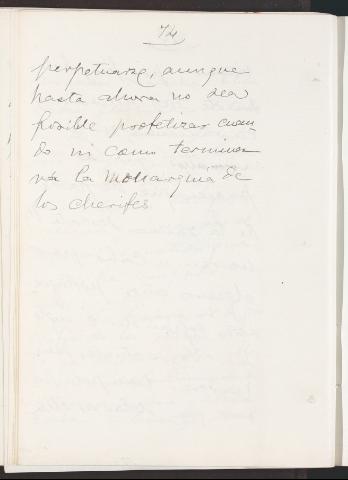 74
perpetuarse, aunque
hasta ahora no sea
posible profetizar cuan-
do ni como termina-
rá la monarquia de
los cherifes